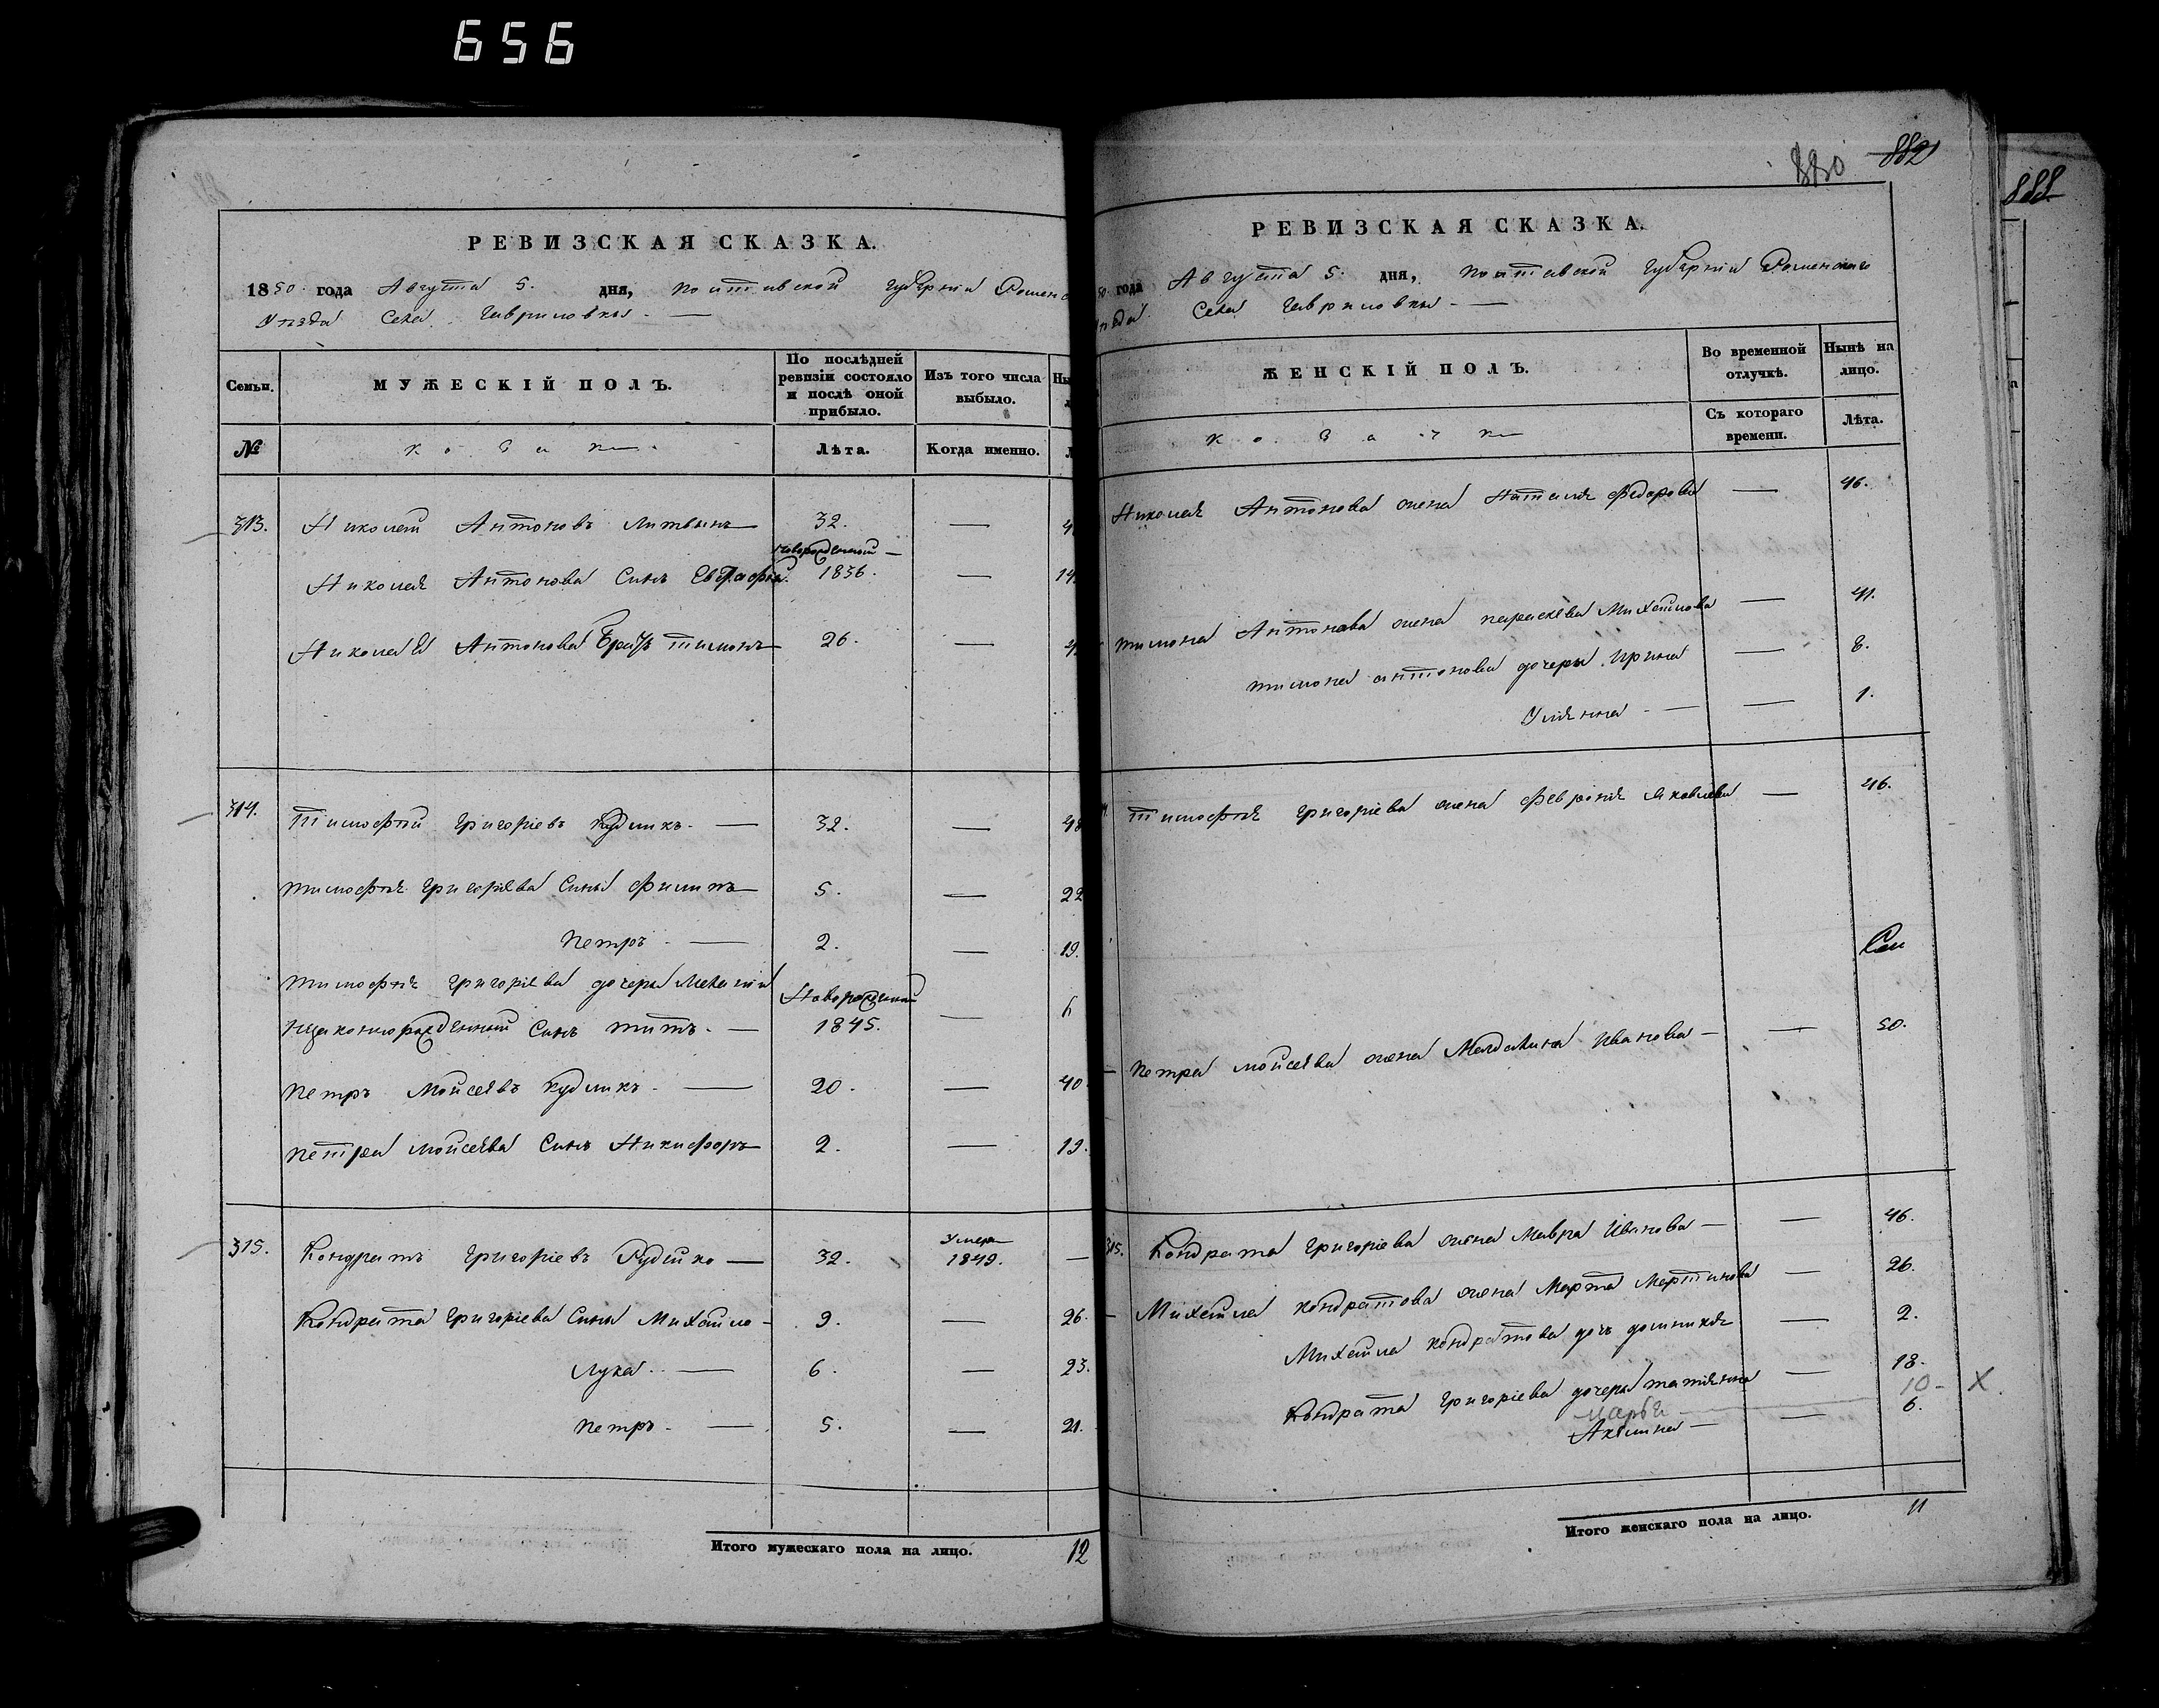 656
РЕВИЗСКАЯ СКАЗКА.
1850 года Августа 5. дня, Полтавской Губернии Роменс
Уѣзда Села Гавриловки. —
Семьи. МУЖЕСКІЙ ПОЛЪ. По послѣдней ревизіи состояло и послѣ оной прибыло. Изъ того числа выбыло. Ны
№ Козаки. Лѣта. Когда именно. Л
313. Николай Антоновъ Литвинъ 32. — 4
Новорожденный —
Николая Антонова Сынъ Евграфій 1836. — 14
Николая Антонова Братъ Тимонъ 26. — 4
314. Тимофѣй Григоріевъ Кудликъ. — 32. — 48
Тимофѣя Григоріева Сыны Филипъ 5. — 22
Петръ. — 2. — 19.
Тимофѣя Григоріева дочери Меланіи Новорожденный
незаконнорожденный Сынъ Титъ. — 1845. —
Петръ Мойсеевъ Кудликъ. — 20. — 40.
Петра Мойсеева Сынъ Никифоръ 2. — 19.
315. Кондратъ Григоріевъ Рудійко — 32. Умеръ 1849. —
Кондрата Григоріева Сыны Михайло — 9. — 26.
Лука. — 6. — 23.
Петръ. — 5. — 21.
Итого мужескаго пола на лицо. 12
880 882
888
РЕВИЗСКАЯ СКАЗКА.
50 года Августа 5. дня, Полтавской Губерніи Роменскаго
ѣзда Села Гавриловки. —
ЖЕНСКІЙ ПОЛЪ. Во временной отлучкѣ. Нынѣ на лицо.
Козачки Съ котораго времени. Лѣта.
Николая Антонова жена Наталія Федорова — 46.
Тимона Антонова жена Параскева Михайлова — 41.
Тимона Антонова дочери Ирина — 8.
Уліянна — — 1.
Тимофѣя Григоріева жена Февронія Яковлева — 46.
Петра Мойсеева жена Магдалина Иванова — — 50.
315. Кондрата Григоріева жена Мавра Иванова — — 46.
Михайла Кондратова жена Марта Мартинова — 26.
Михайла Кондратова дочь Домникія — 2.
Кондрата Григоріева дочери Татіянна — 18.
Марья — 10 – X.
Акилина — — 6.
Итого женскаго пола на лицо. 11